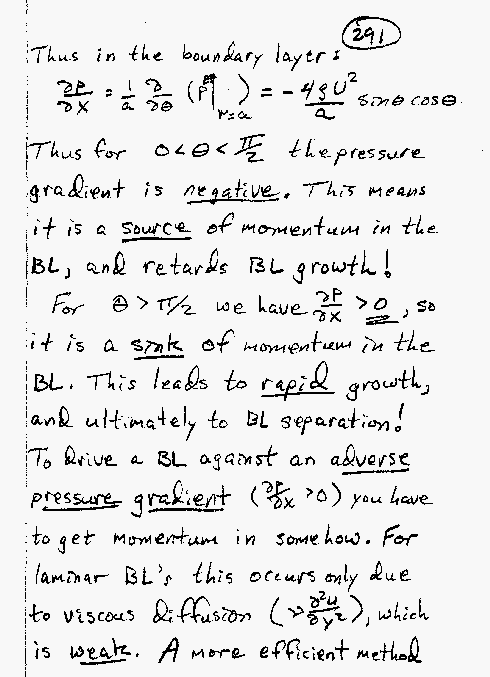 291
Thus in the boundary layer:
∂P/∂x = 1/a ∂/∂θ (P*|r=a) = - 4ρU²/a sinθ cosθ.
Thus for 0<θ<π/2 the pressure
gradient is negative. This means
it is a source of momentum in the
BL, and retards BL growth!
For θ > π/2 we have ∂P/∂x > 0, so
it is a sink of momentum in the
BL. This leads to rapid growth,
and ultimately to BL separation!
To drive a BL against an adverse
pressure gradient (∂P/∂x >0) you have
to get momentum in somehow. For
laminar BL's this occurs only due
to viscous diffusion (ν ∂²u/∂y²), which
is weak. A more efficient method